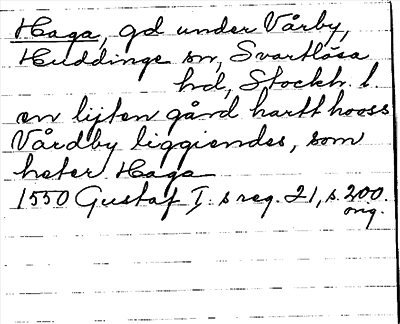 Haga, gd under Vårby,
Huddinge sn, Svartlösa
hd, Stockh. l.
en lijten gård hartt hooss
Vårdby liggiendes, som
heter Haga
1550 Gustaf I:s reg. 21, s. 200.
orig.